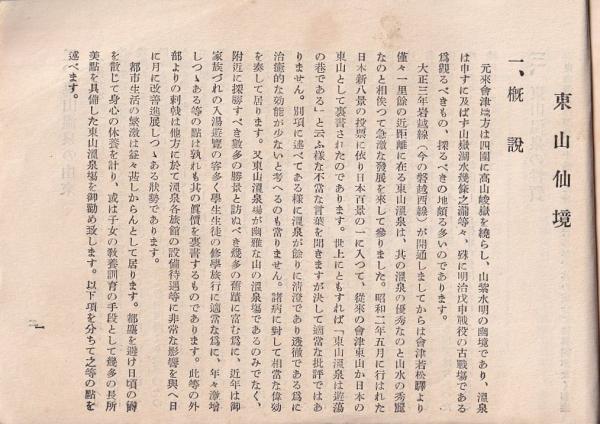 東山仙境
一、概說
元來會津地方は四圍に高山峻嶽を繞らし、山紫水明の幽境であり、溫泉
は申すに及ばず山嶽湖水幾條之瀧等々、殊に明治戊申戰役の古戰場である
爲觀るべきもの、探るべきの地頗る多いのであります。
大正三年岩越線(今の磐越西線)が開通しましてからは會津若松驛より
僅々一里餘の近距離に在る東山溫泉は、其の溫泉の優秀なのと山水の秀麗
なのと相俟つて急激な發展を來して參りました。昭和二年五月に行はれた
日本新八景の投票に依り日本百景の一に入つて、從來の會津東山か日本の
東山として裏書されたのであります。世上にともすれば「東山溫泉は遊蕩
の巷である」と云ふ樣な不當な言葉を聞きますが決して適當な批評ではあ
りません。別項に述べてある樣に溫泉が餘りに清澄であり透徹である爲に
治療的な効能が少ないと考へるのも當りません。諸病に對して相當な偉効
を奏して居ります。又東山溫泉場が幽雅な山の溫泉場であるのみでなく、
附近に探勝すべき數多の勝景と訪ぬべき幾多の舊蹟に富む爲に、近年は御
家族づれの入湯遊覽の客多く學生生徒の修學旅行に適當な爲に、年々激增
しつゝある等の點は孰れも其の眞價を裏書するものであります。此等の外
部よりの刺戟は他方に於て溫泉各旅館の設備待遇等に非常な影響を與へ日
に月に改善進展しつゝある狀勢であります。
都市生活の繁激は益々甚しからんとして居ります。都塵を避け日頃の鬱
を散じて身心の休養を計り、或は子女の敎養訓育の手段として幾多の長所
美點を具備した東山溫泉場を御勸め致します。以下項を分ちて之等の點を
述べます。
一